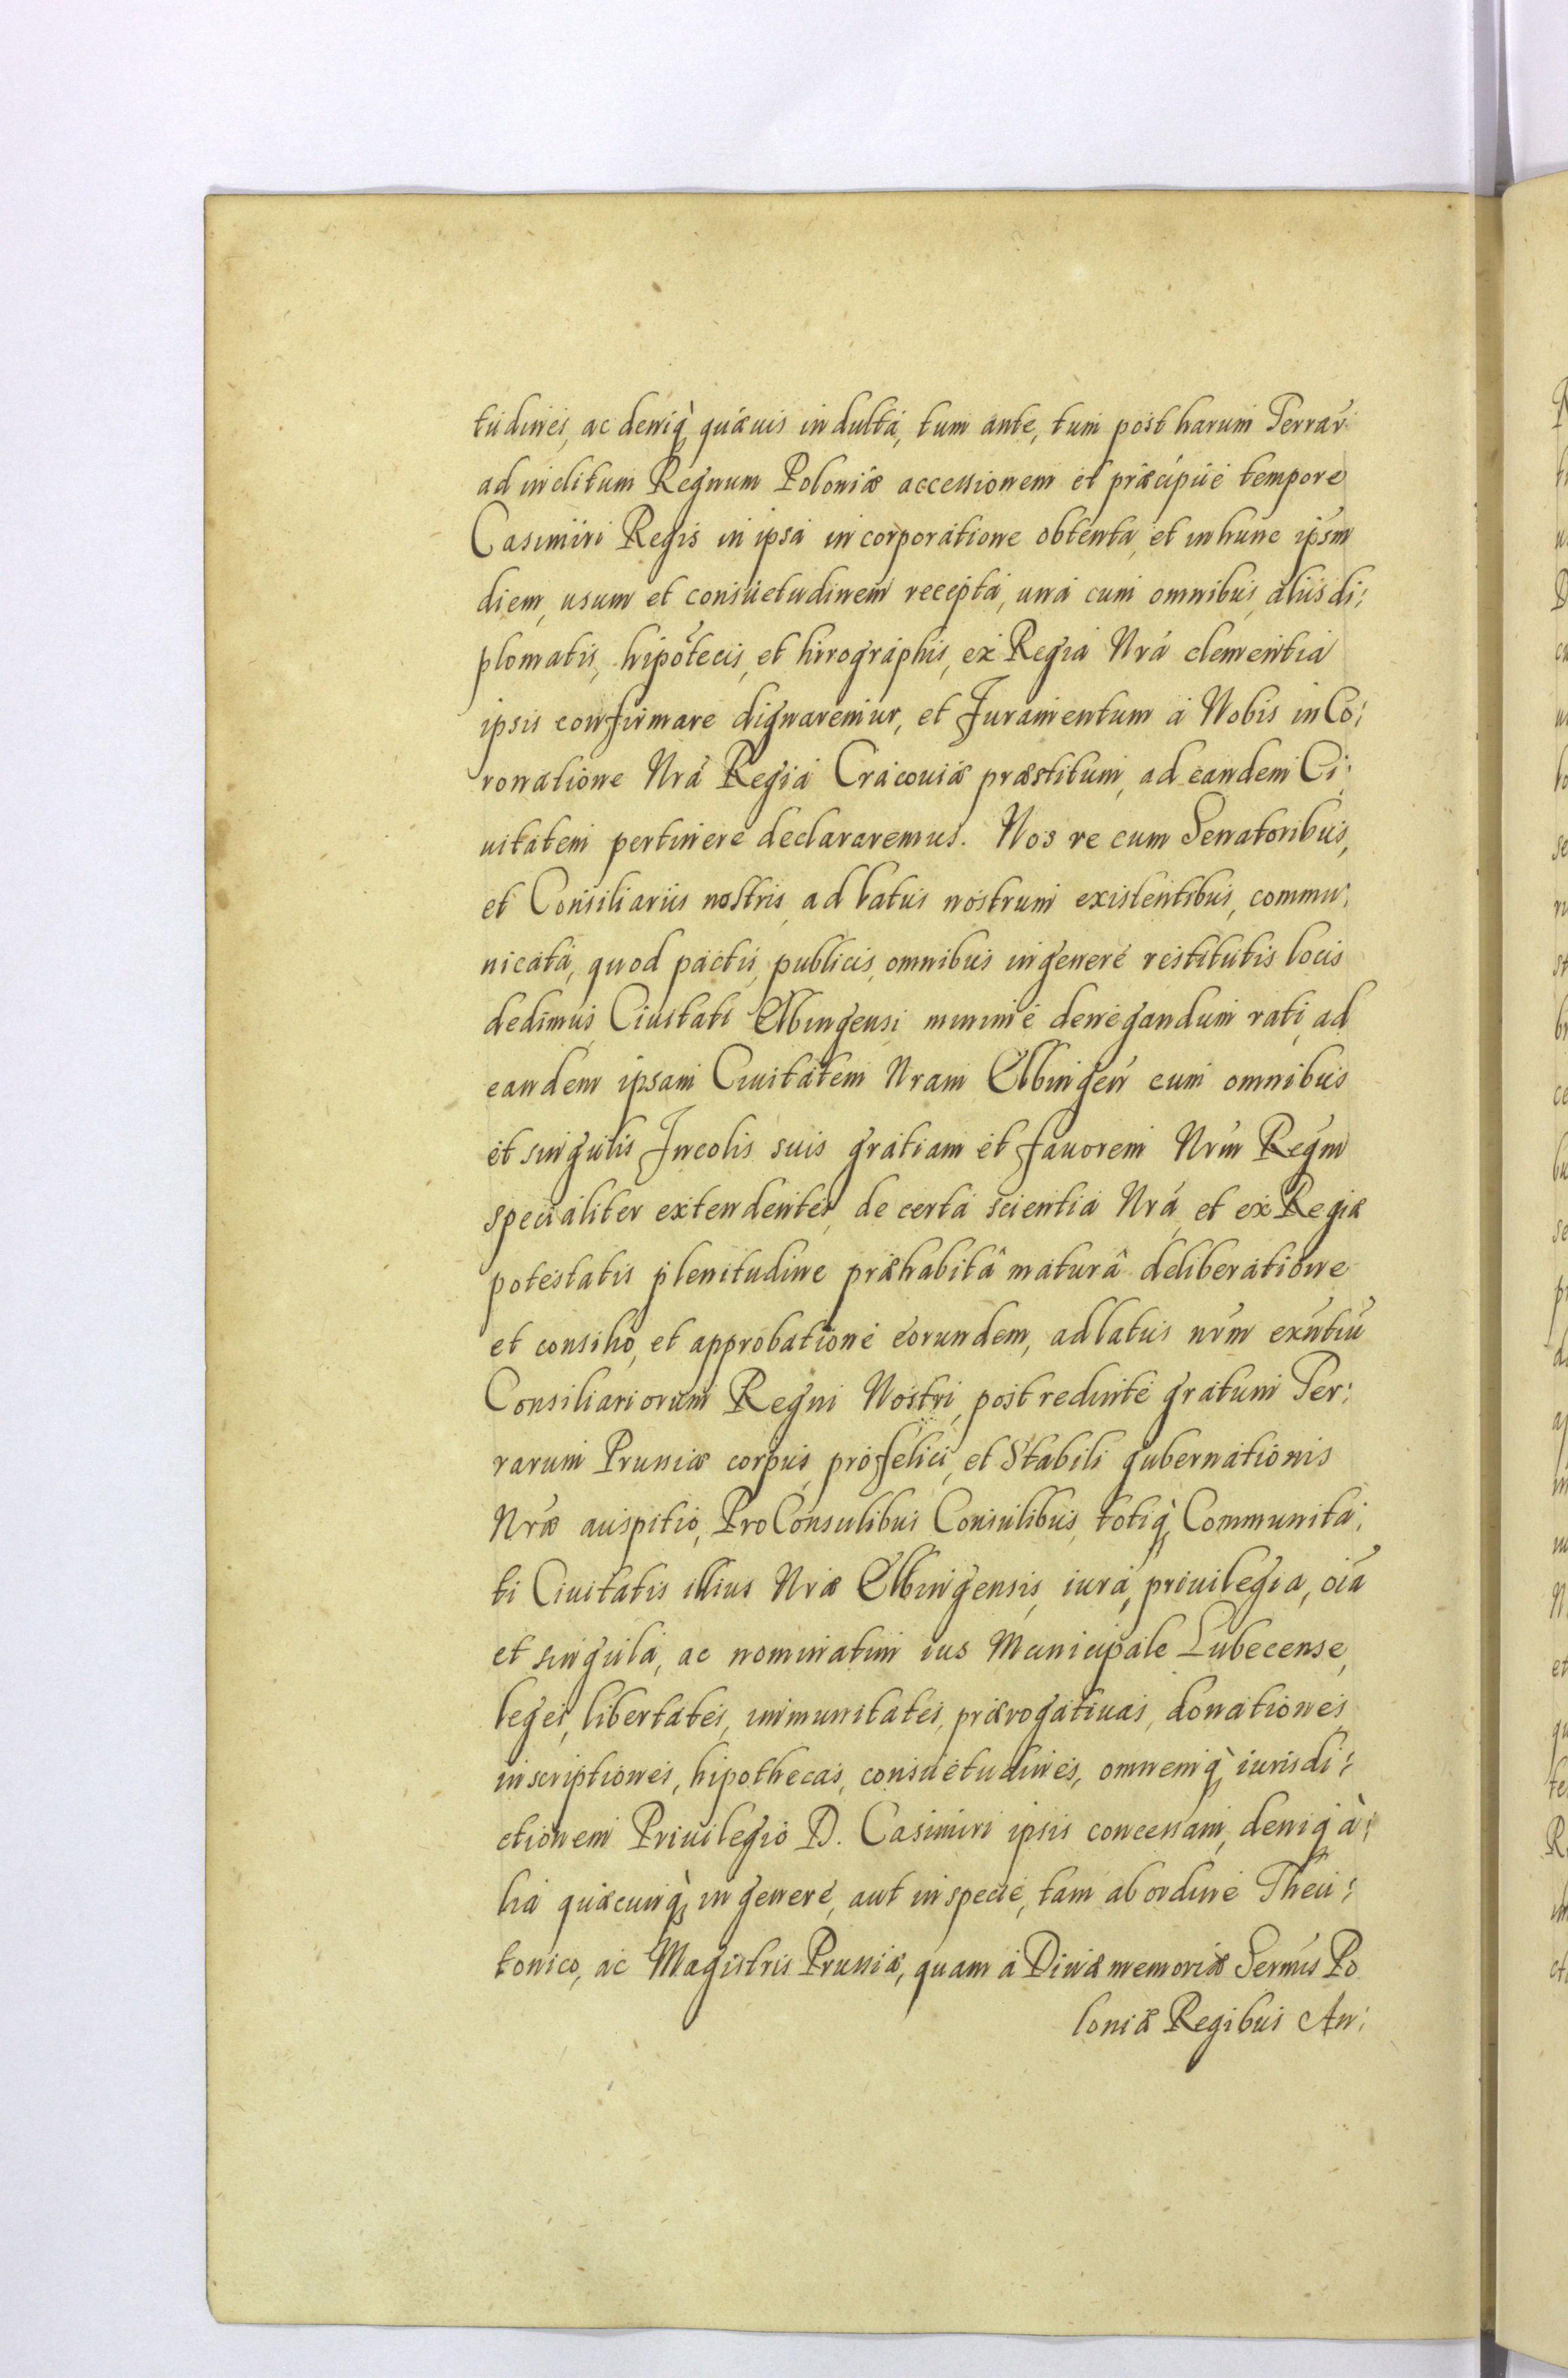 tudines, ac deniq̀ꝫ quæuis indulta, tum ante, tum post harum Terrar̃
ad inclitum Regnum Poloniæ accessionem et præcipúe tempore
Casimiri Regis in ipsa incorporatione obtenta, et in hunc ipsm̃
diem, usum et consuetudinem recepta, una cum omnibus alijs di:
plomatis, hipõtecis, et hirographis, ex Regia Nrã clementia
ipsis confirmare dignaremur, et Juramentum à Nobis in Co:
ronatione Nrã Regia Cracouiæ præstitum, ad eandem Ci:
uitatem pertinere declararemus. Nos re cum Senatoribus,
et Consiliarijs nostris ad latus nostrum existentibus, commu:
nicata, quod pactis publicis omnibus in genere restitutis locis
dedimus, Ciuitati Elbingensi minimè denegandum rati, ad
eandem ipsam Ciuitatem Nram Elbingeñ cum omnibus
et singulis Incolis suis gratiam et fauorem Nrm̃ Regm̃
specialiter extendentes, de certa scientia Nrã, et ex Regiæ
potestatis plenitudine præhabitâ maturâ deliberatione
et consilio, et approbatione eorundem, ad latus nrm̃ exñtiũ
Consiliariorum Regni Nostri, post redinte gratum Ter:
rarum Prussiæ corpus, pro felici, et Stabili gubernationis
Nræ̃ auspitio, ProConsulibus Consulibus, totiq̀ꝫ Communita:
ti Ciuitatis illius Nræ Elbingensis, iura, priuilegia, oĩa
et singula, ac nominatim ius Municipale Lubecense,
leges, libertates, immunitates, prærogatiuas, donationes,
inscriptiones, hipothecas, consuetudines, omnemq̀ꝫ iurisdi:
ctionem Priuilegio D. Casimiri ipsis concessam, deniqꝫ à:
lia quæcunq̀ꝫ in genere, aut in specie, tam ab ordine Theu:
tonico, ac Magistris Prussiæ, quam à Diuæ memoriæ Serm̃is Po
loniæ Regibus An: